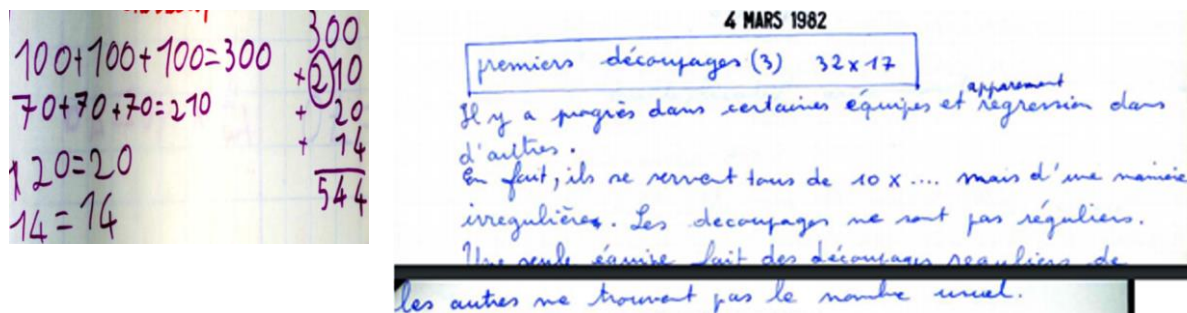 100+100+100=300
70+70+70=210
20=20
14=14
300
+210
+ 20
+ 14
544
4 MARS 1982
premiers découpages (3) 32x17
apparement
Il y a progrès dans certaines équipes et régression dans
d'autres.
En fait, ils se servent tous de 10 x .... mais d'une manière
irregulière. Les decoupages ne sont pas réguliers.
Une seule équipe fait des découpages reguliers de
les autres ne trouvent pas le nombre usuel.